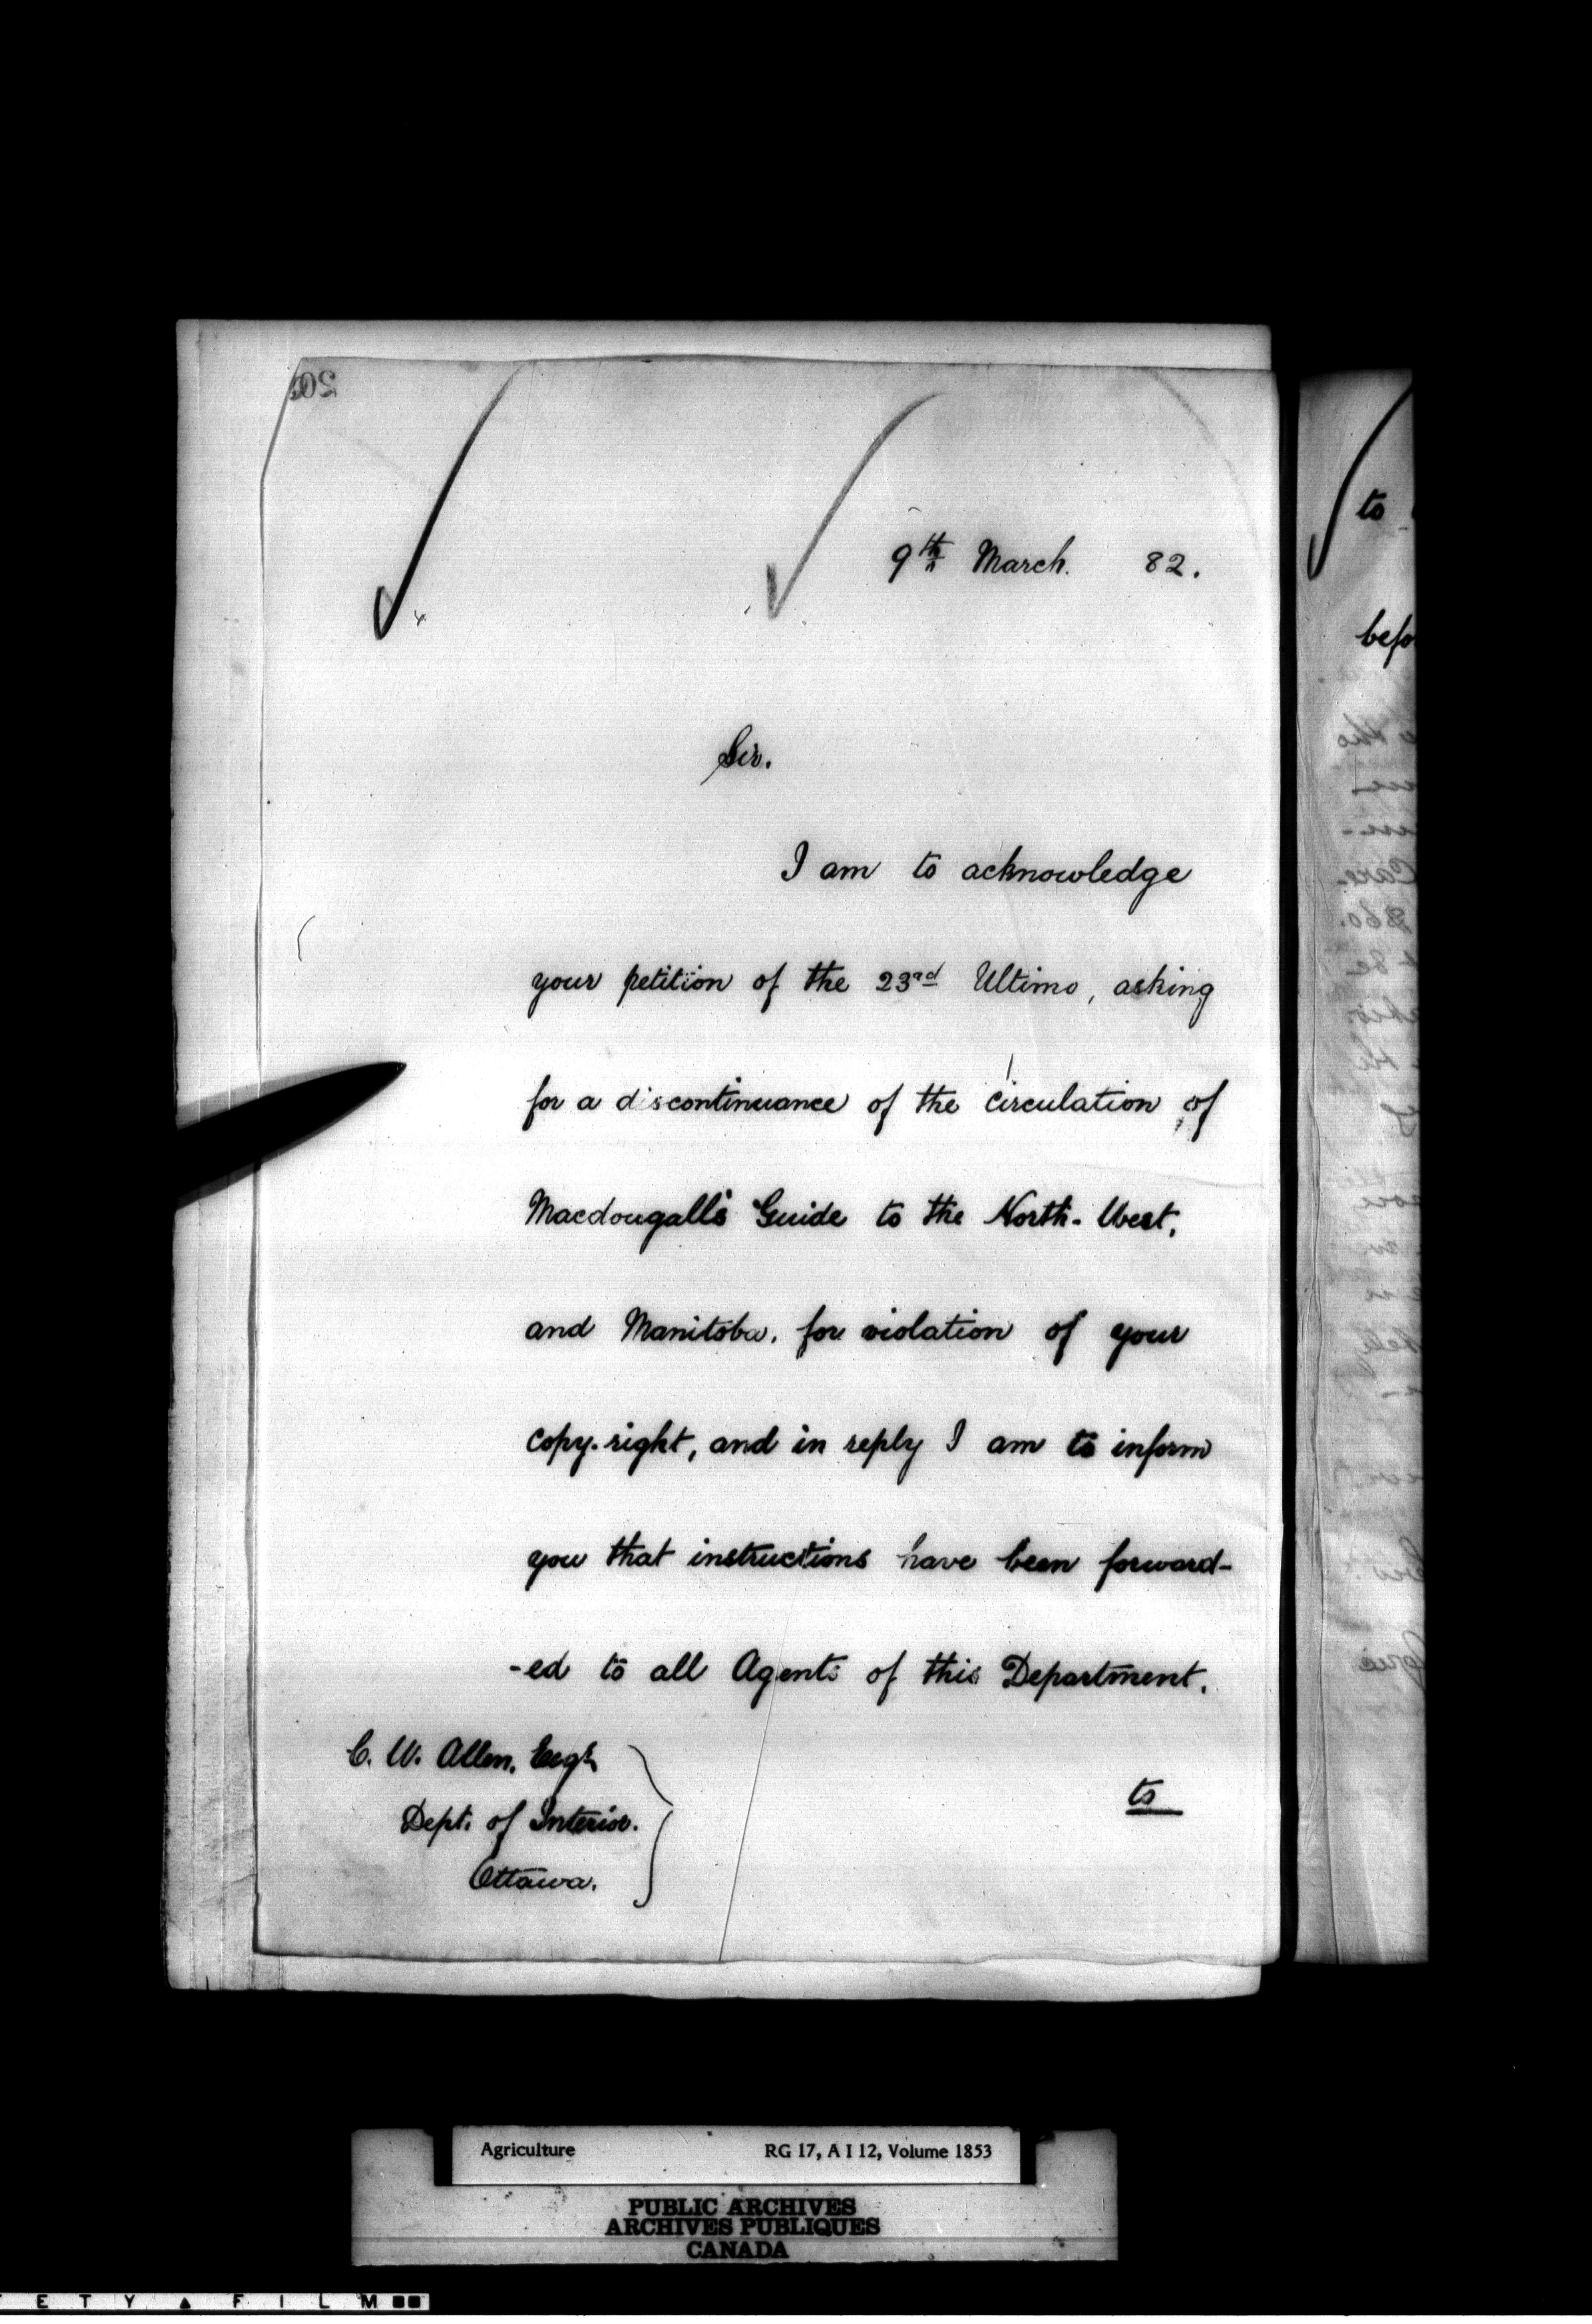 20
9th March. 82.
Sir.
I am to acknowledge
your petition of the 23rd Ultimo, asking
for a discontinuance of the circulation of
Macdougall's Guide to the North-West,
and Manitoba, for violation of your
copy-right, and in reply I am to inform
you that instructions have been forward-
-ed to all Agents of this Department.
C. W. Allen, Esqr.
Dept. of Interior.
Ottawa.
to
to
befo
Agriculture RG 17, A I 12, Volume 1853
PUBLIC ARCHIVES
ARCHIVES PUBLIQUES
CANADA
E T Y ▲ F I L M